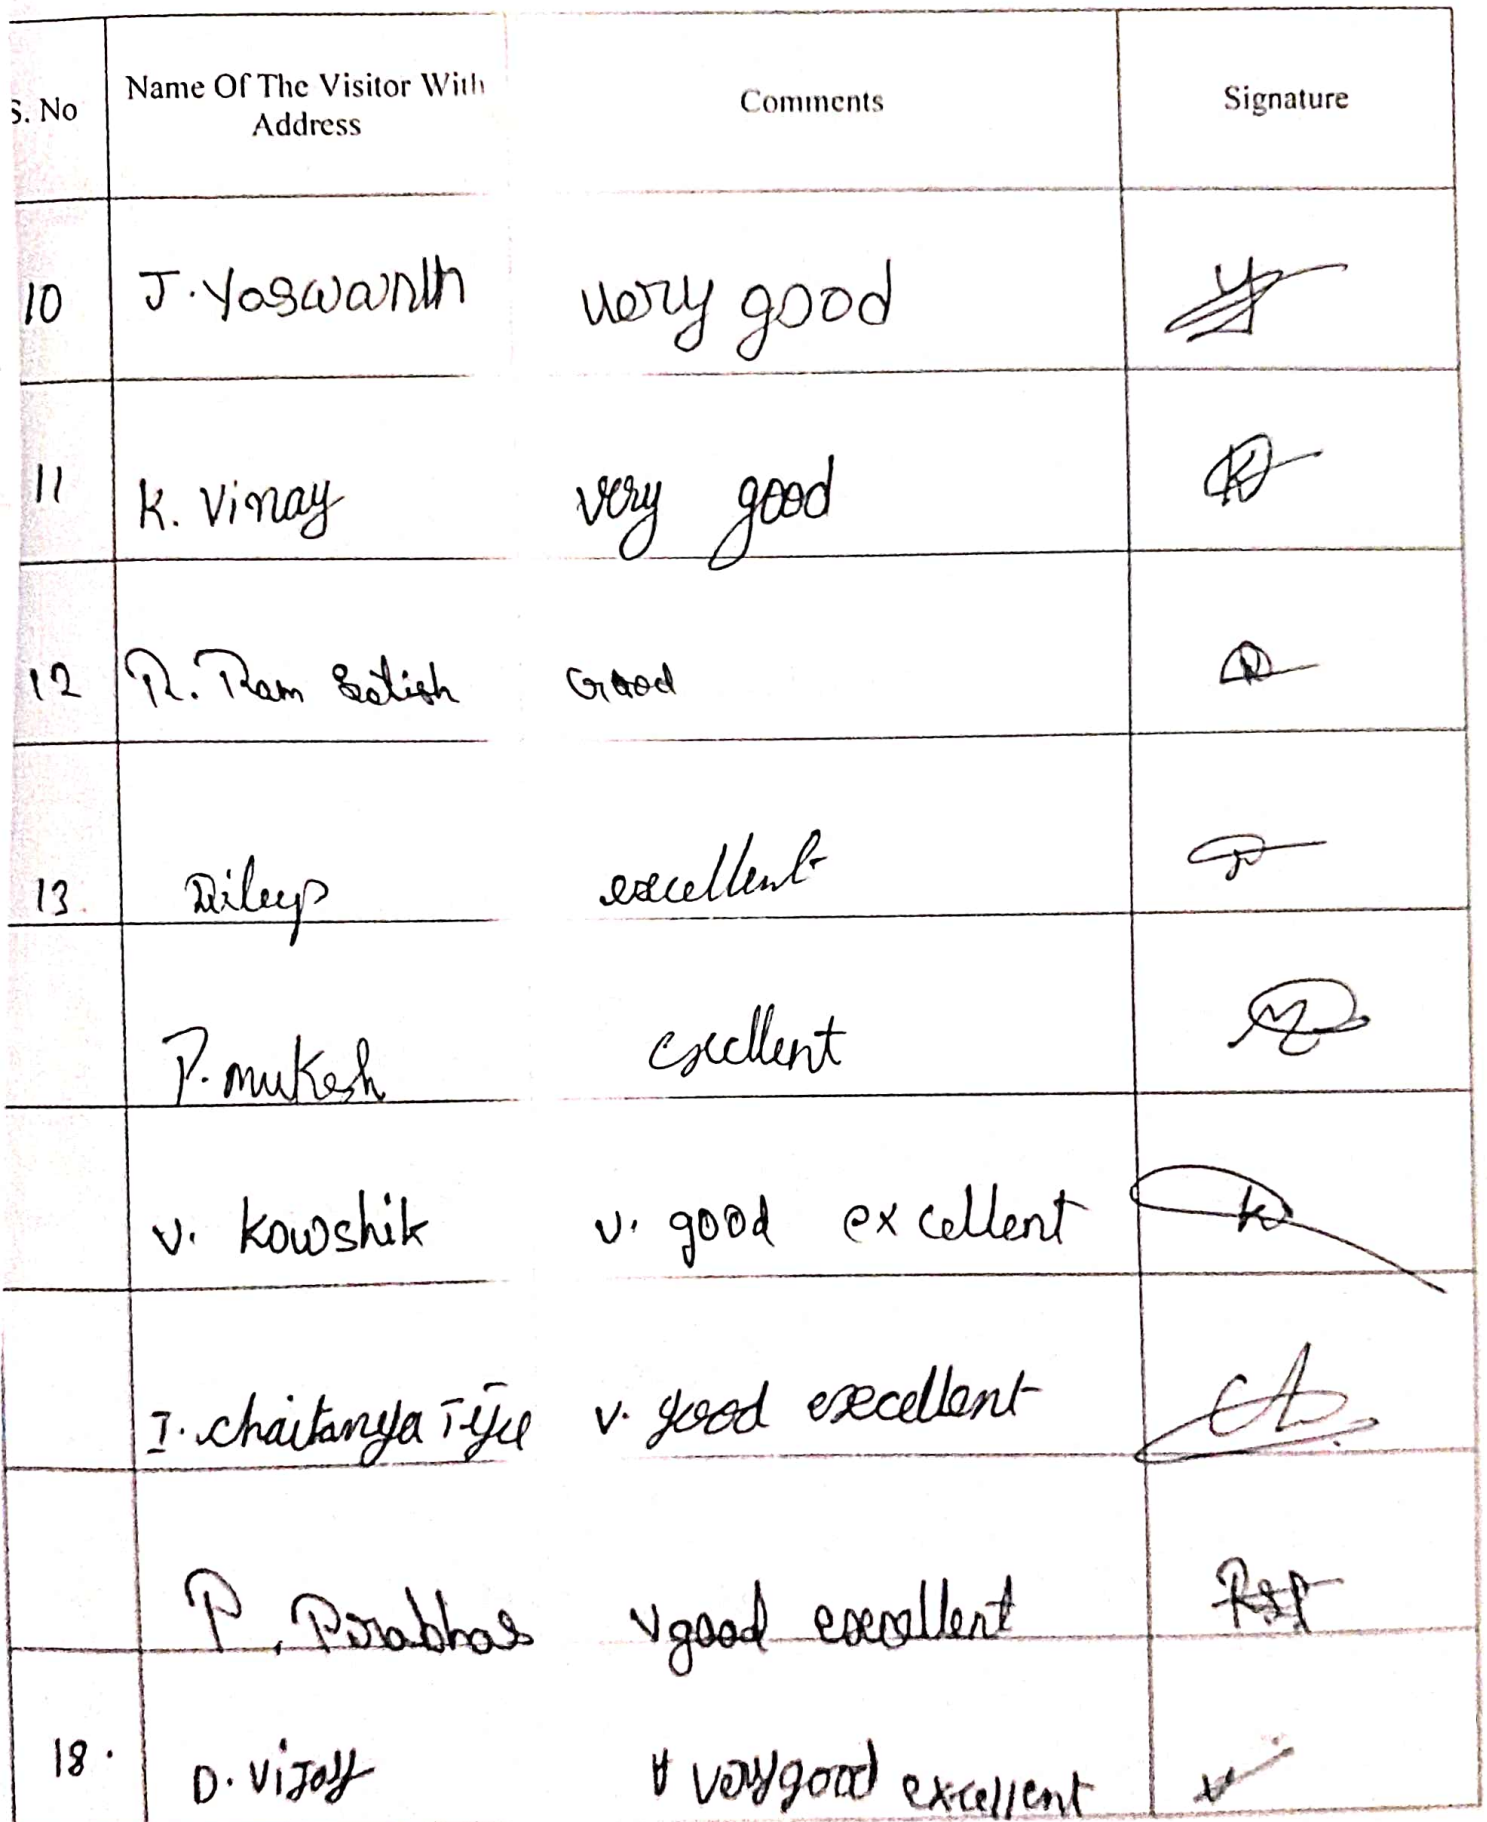 S. No Name Of The Visitor With Address Comments Signature
10 J. Yaswanth very good
11 K. Vinay very good
12 R. Ram Satish Good
13. Dileep excellent
P. mukesh excellent
v. kowshik v. good excellent
I. chaitanya v. good execellent
P. Prabhas v good excellent
18. D. Vijay very good excellent